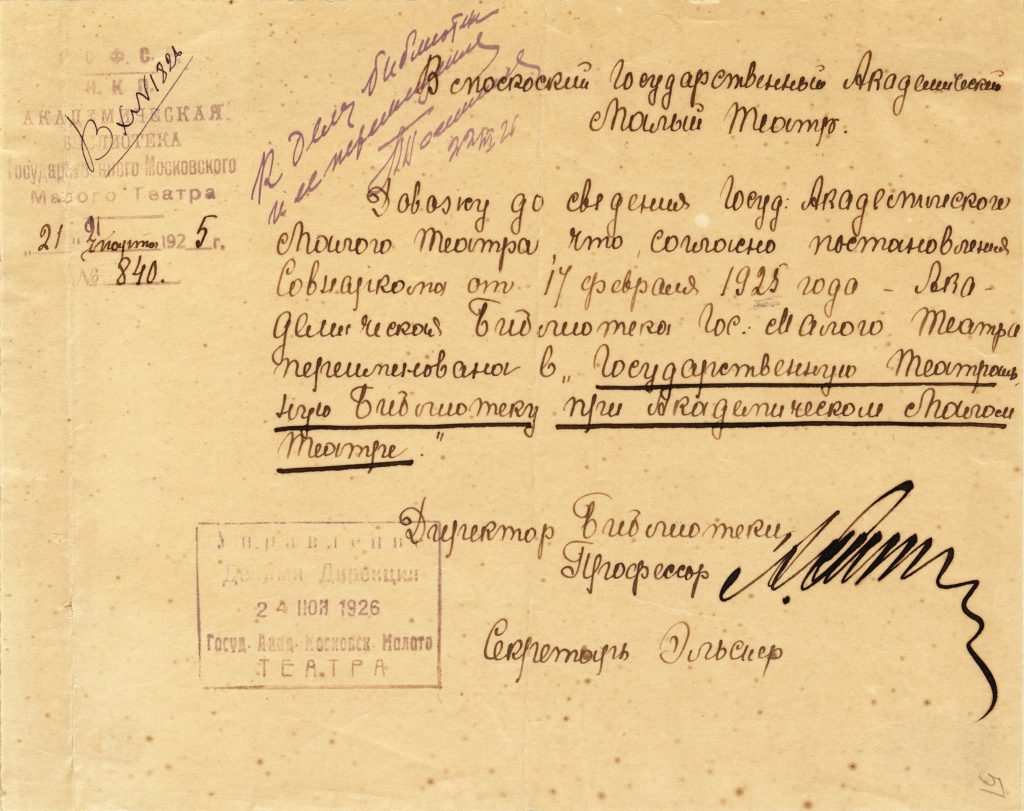 Р. С. Ф. С. Р.
Н. К. П.
АКАДЕМИЧЕСКАЯ
БИБЛИОТЕКА
Государственного Московского
Малого Театра
"21" марта 1925 г.
№ 840.
Вх № 1826
К делу библиотеки
и ее
В Московский Государственный Академический
Малый Театр.
Довожу до сведения Госуд. Академического
Малого Театра, что, согласно постановления
Совнаркома от 17 февраля 1925 года - Ака-
демическая Библиотека Гос. Малого Театра
переименована в „Государственную Театраль-
ную Библиотеку при Академическом Малом
Театре."
Директор Библиотеки,
Профессор
Секретарь Эльснер
Управление
Делами Дирекции
24 НОЙ 1926
Госуд. Акад. Московск. Малого
ТЕАТРА
51